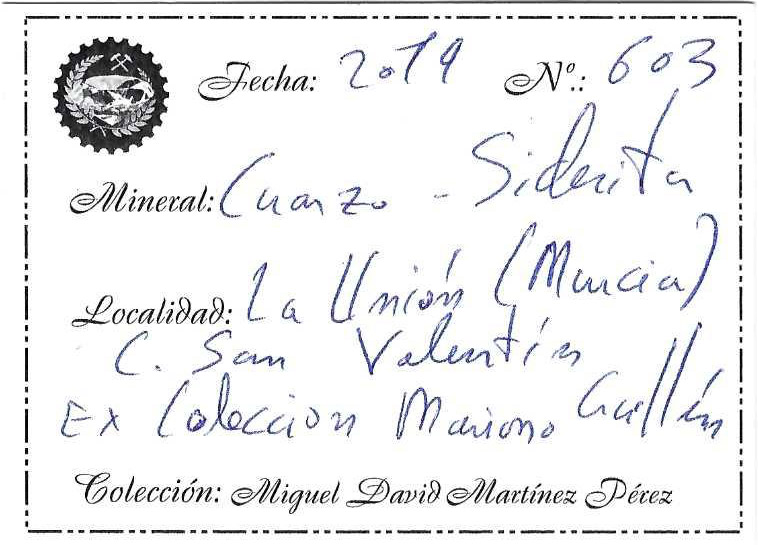 Fecha: 2019 Nº.: 603
Mineral: Cuarzo - Siderita
Localidad: La Unión (Murcia)
C. San Valentín
Ex Coleccion Mariano Guillén
Colección: Miguel David Martínez Pérez